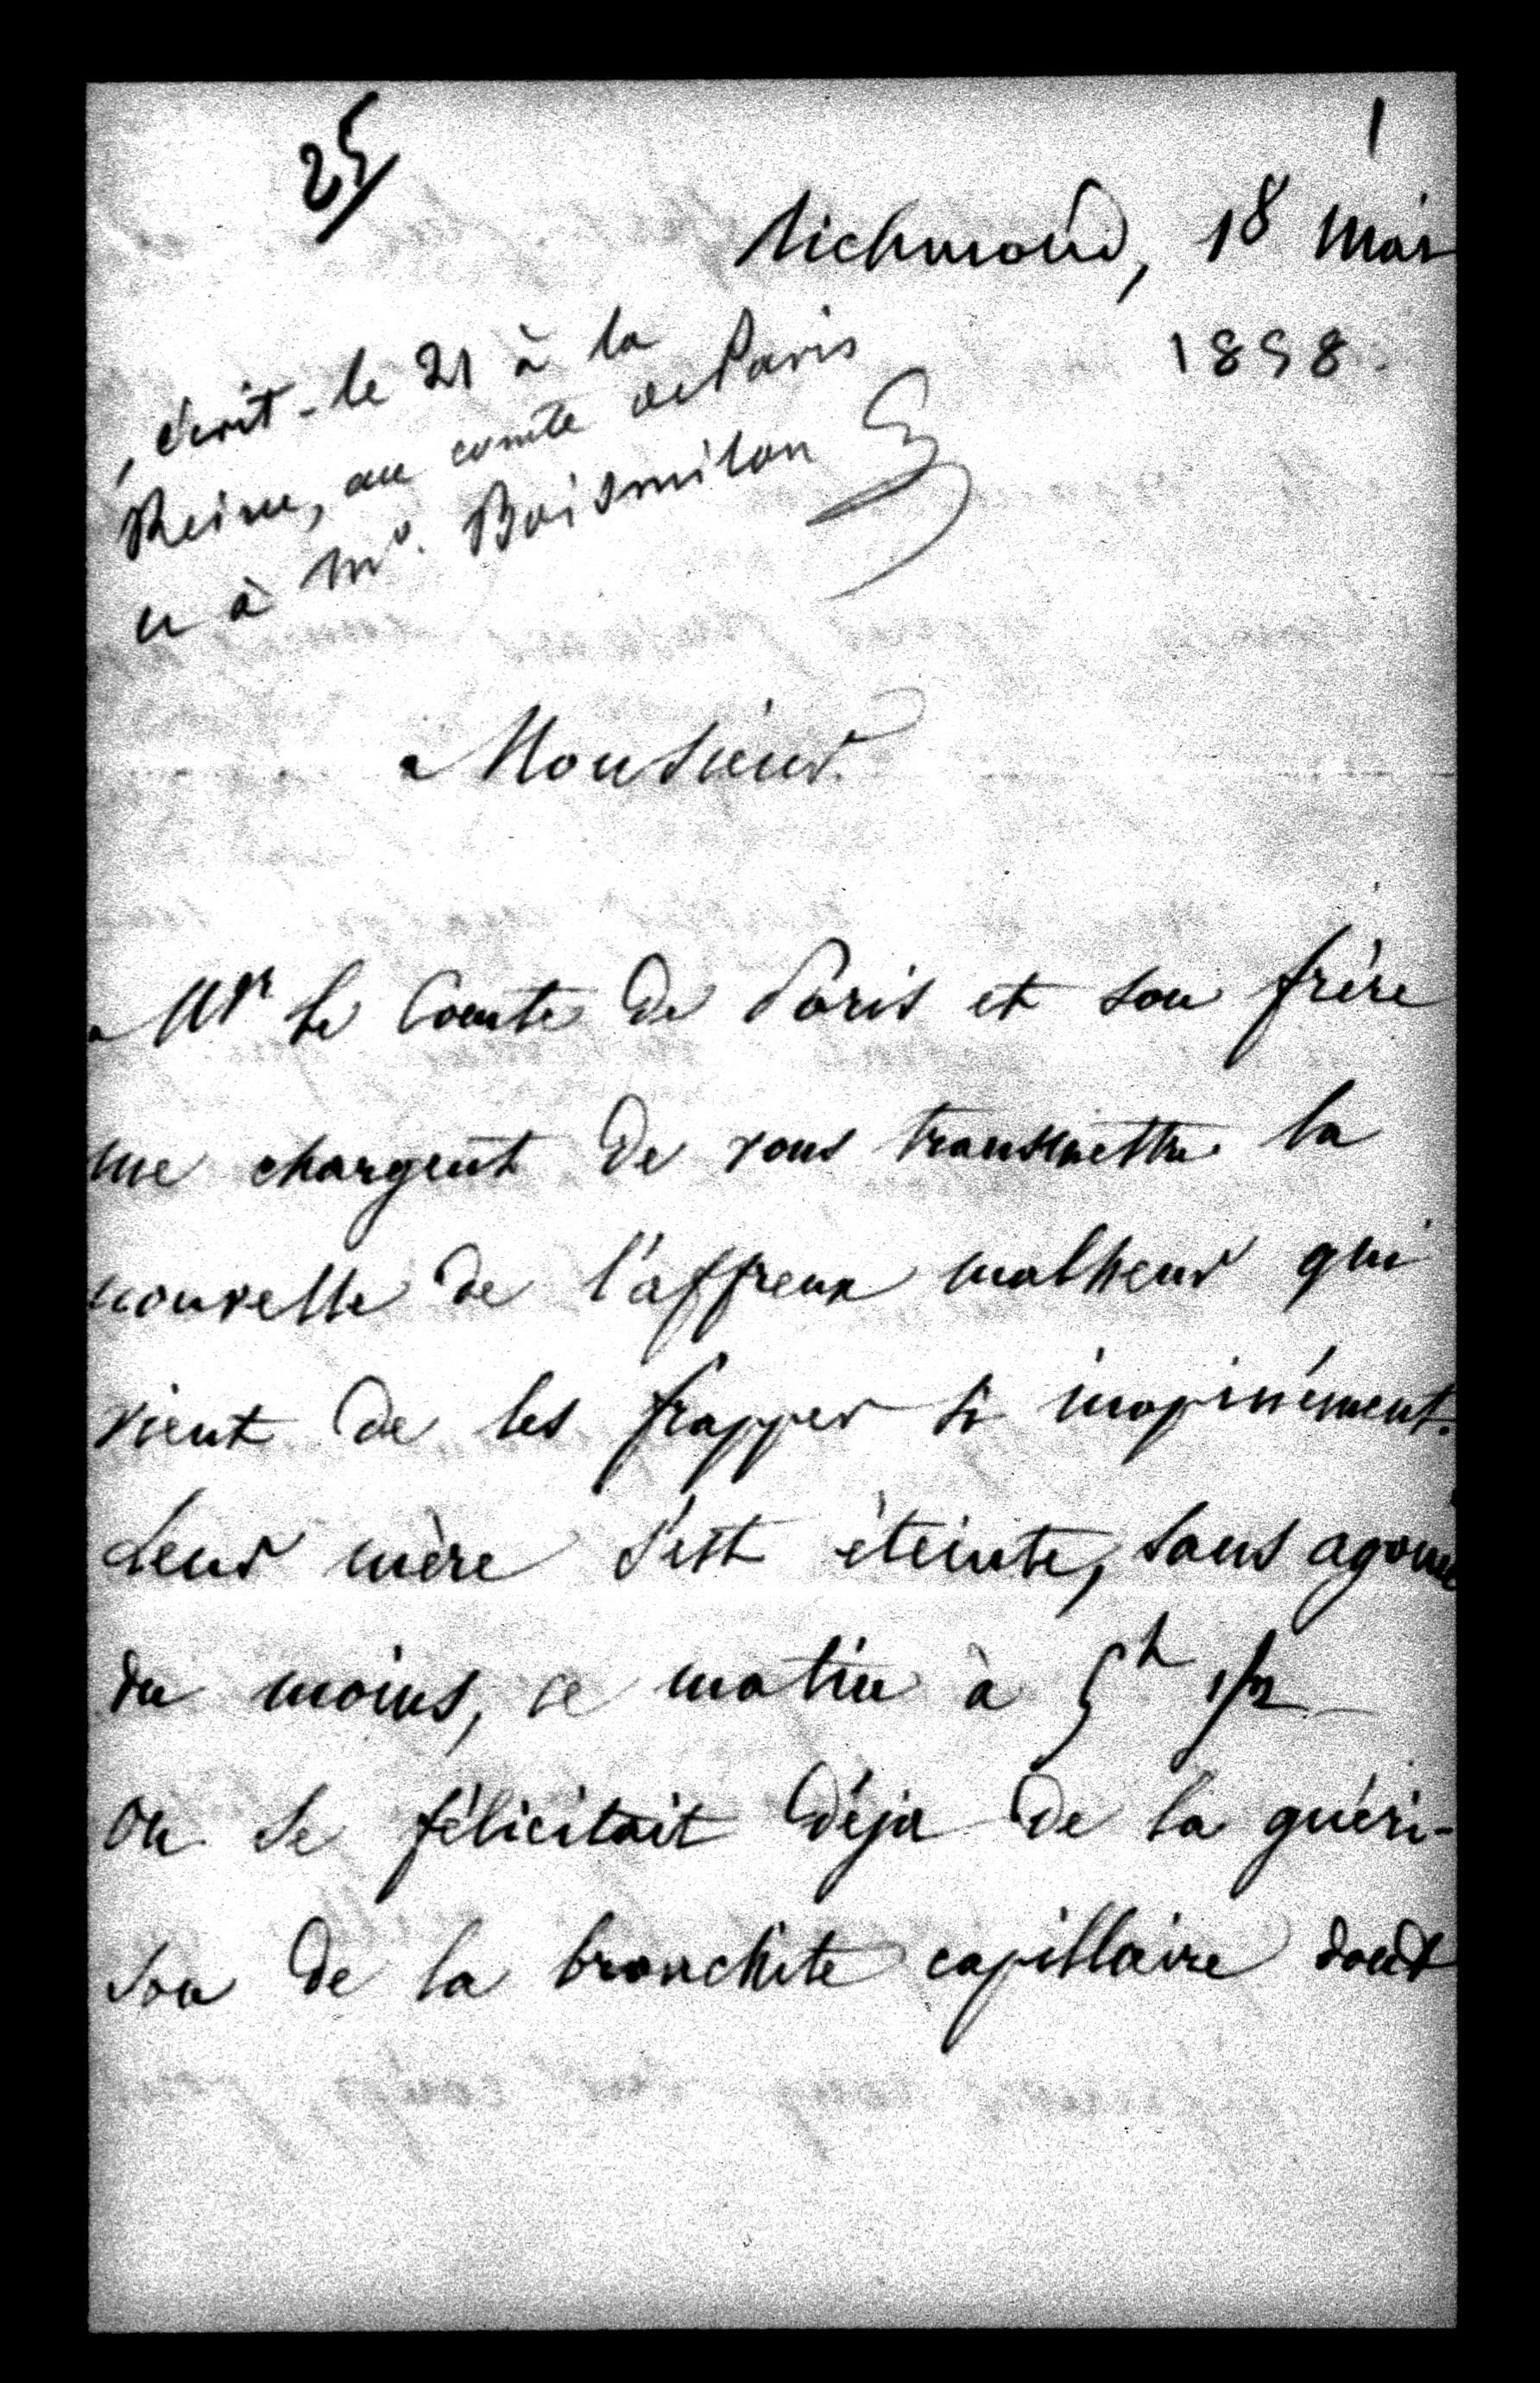 25
1
Richmond, 18 Mai
1858.
écrit le 21 à la
Reine, au comte de Paris
et à Mr. Boismilon
Monsieur
Mgr le Comte de Paris et son frère
me chargent de vous transmettre la
nouvelle de l'affreux malheur qui
vient de les frapper si inopinément.
Leur mère s'est éteinte, sans agonie
du moins, ce matin à 5h 1/2
On se félicitait déja de la guéri-
son de la bronchite capillaire dont